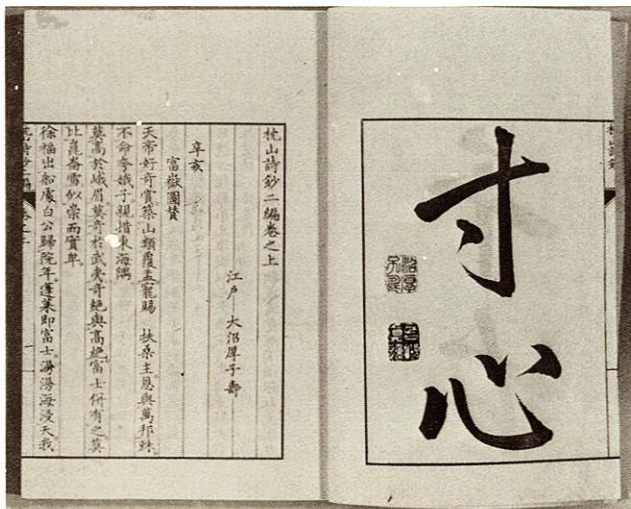 寸心
枕山詩鈔二編卷之上
江戸 大沼厚子壽
辛亥
富嶽圖賛
天帝好奇賞築山類覆盂寵賜 扶桑主恩與萬邦殊
不命夸娥子親措東海隅
莫高於峨眉莫奇於武夷奇絶與高絶富士併有之莫
比崑崙雪似崇而實卑
徐福出船處白公歸院年蓬萊即富士湯湯海浸天我